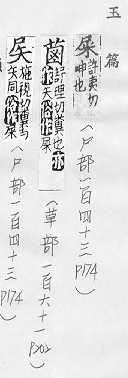 玉篇
屎許夷切呻也(尸部一百四十三P174)
菌許理切糞也亦作矢俗作屎(草部一百六十一P202)
𡱁施視切糞与矢同俗作屎(尸部一百四十三P174)